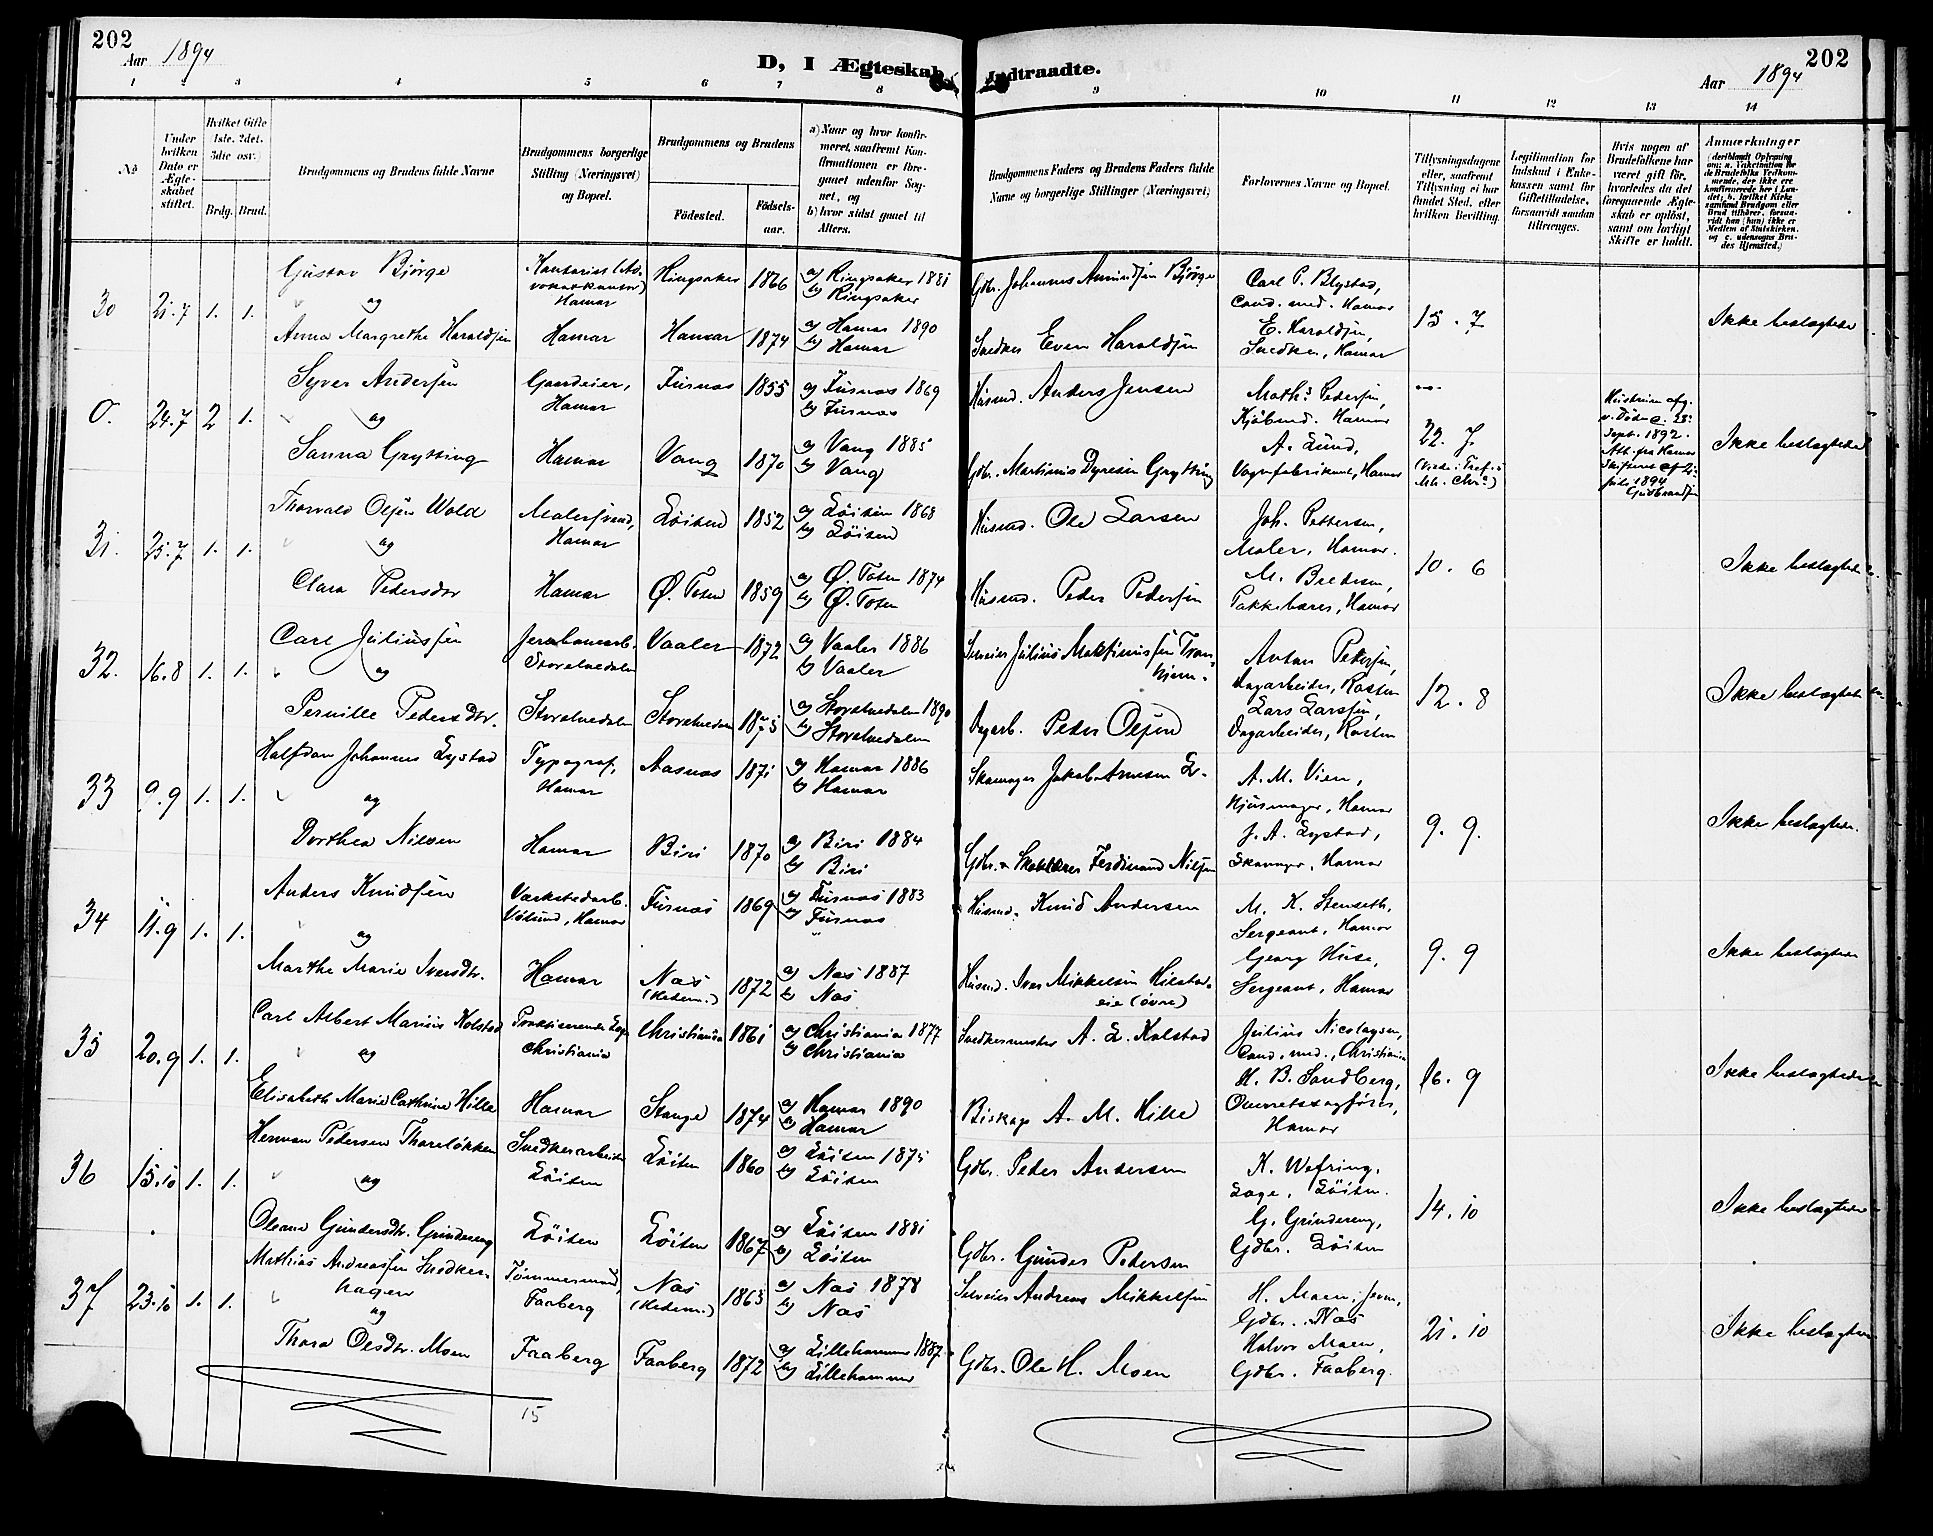 202
Aar 1894
D, I Ægteskab Indtraadte.
202
Aar 1894
1 2 3 4 5 6 7 8 9 10 11 12 13 14
No
Under hvilken Dato er Ægteskabet stiftet.
Hvilket Gifte 1ste. 2det. 3die osv.
Brdg. Brud.
Brudgommens og Brudens fulde Navne
Brudgommens borgerlige Stilling (Næringsvei) og Bopæl.
Brudgommens og Brudens
Fødested.
Fødselsaar.
a) Naar og hvor konfirmeret, saafremt Konfirmationen er foregaaet udenfor Sognet, og
b) hvor sidst gaaet til Alters.
Brudgommens Faders og Brudens Faders fulde Navne og borgerlige Stillinger (Næringsvei)
Forlovernes Navne og Bopæl.
Tillysningsdagene eller, saafremt Tillysning ei har fundet Sted, efter hvilken Bevilling.
Legitimation for Indskud i Enkekassen samt for Giftetilladelse, forsaavidt saadan tiltrænges.
Hvis nogen af Brudefolkene har været gift før, hvorledes da det foregaaende Ægteskab er opløst, samt om lovligt Skifte er holdt.
Anmærkninger
30 21.7 1. 1.
Gustav Bjørge
og
Anna Margrethe Haraldsen
Hamar
Hamar
Ringsaker 1866
Hamar 1874
a) Ringsaker 1881
b) Ringsaker
a) Hamar 1890
b) Hamar
Gdbr. Johannes Amundsen Bjørge
Snedker Even Haraldsen
Carl P. Blystad,
Cand. med. Hamar
E. Haraldsen,
Snedker, Hamar
15.7
Ikke beslægtede
0. 24.7 2 1.
Syver Andersen
og
Sanna Grytting
Gaardeier,
Hamar
Hamar
Furnæs 1855
Vang 1870
a) Furnæs 1869
b) Furnæs
a) Vang 1885
b) Vang
Husmd. Anders Jensen
Gdbr. Martinus Dyresen Grytting
Maths. Pedersen,
Kjøbmd. Hamar
A. Lund,
Vognfabrikant, Hamar
22.7.
Hustruen afg.
v. Døden d. 23.
Sept. 1892.
Att. fra Hamar
Skifteret af 2.
juli 1894
Gudbrandsen
Ikke beslægtede
31. 25.7 1. 1.
Thorvald Olsen Wold
og
Clara Pedersdtr
Malersvend,
Hamar
Hamar
Løiten 1852
Ø. Toten 1859
a) Løiten 1868
b) Løiten
a) Ø. Toten 1874
b) Ø. Toten
Husmd. Ole Larsen
Husmd. Peder Pedersen
Joh. Pettersen,
Maler, Hamar.
M. Bredesen,
Pakkebærer, Hamar
10.6
Ikke beslægtede
32. 16.8 1. 1.
Carl Juliussen
og
Pernille Pedersdtr.
Jernbanearb.
Storelvedalen
Storelvedalen
Vaaler 1872
Storelvedalen 1875
a) Vaaler 1886
b) Vaaler
a) Storelvedalen 1890
b) Storelvedalen
Selveier Julius Martinussen
Dagarb. Peder Olsen
Anton Pedersen,
Dagarbeider, Rasten
Lars Larsen,
Dagarbeider, Rasten
12.8
Ikke beslægtede
33 9.9 1. 1.
Halfdan Johannes Lystad
og
Dorthea Nilsen
Typograf,
Hamar
Hamar
Aasnæs 1871
Biri 1870
a) Hamar 1886
b) Hamar
a) Biri 1884
b) Biri
Skomager Jakob Arnesen L.
Gdbr. & Skolelærer Ferdinand Nilsen
A. M. Vien,
Hjulmager, Hamar
J. A. Lystad,
Skomager, Hamar
9.9.
Ikke beslægtede.
34 11.9 1. 1.
Anders Knudsen
og
Marthe Marie Iversdtr.
Værkstedarb.
Vølund, Hamar
Hamar
Furnæs 1869
Næs
(Hedem.) 1872
a) Furnæs 1883
b) Furnæs
a) Næs 1887
b) Næs
Husmd. Knud Andersen
Husmd. Iver Mikkelsen
eie (øvre)
M. K. Stenseth,
Sergeant, Hamar
Georg Huse,
Sergeant, Hamar
9.9
Ikke beslægtede
35 20.9 1. 1.
Carl Albert Marius Kolstad
og
Elisabeth Marie Cathrine Hille
Praktiserende Læge
Christiania
Hamar
Christiania 1861
Stange 1874
a) Christiania 1877
b) Christiania
a) Hamar 1890
b) Hamar
Snedkermester A. L. Kolstad
Biskop A. M. Hille
Julius Nicolaysen,
Cand. med., Christiania
H. B. Sandberg,
Overretssagfører,
Hamar
16.9
Ikke beslægtede
36 15.10 1. 1.
Herman Pedersen Thoreløkken
og
Oleane Gundersdtr. Grindereng
Snedkerarbeider
Løiten
Løiten
Løiten 1860
Løiten 1867
a) Løiten 1875
b) Løiten
a) Løiten 1881
b) Løiten
Gdbr. Peder Andersen
Gdbr. Gunder Pedersen
K. Wefring,
Læge, Løiten.
G. Grindereng,
Gdbr. Løiten
14.10
Ikke beslægtede
37 23.10 1. 1.
Mathias Andreassen Snedkerhagen
og
Thora Olsdtr. Moen
Tømmermand,
Faaberg
Faaberg
Næs
(Hedem.) 1863
Faaberg 1872
a) Næs 1878
b) Næs
a) Lillehammer 1887
b) Lillehammer
Selveier Andreas Mikkelsen
Gdbr. Ole H. Moen
H. Moen, jevn,
Gdbr. Næs
Halvor Moen,
Gdbr. Faaberg.
21.10
Ikke beslægtede
15